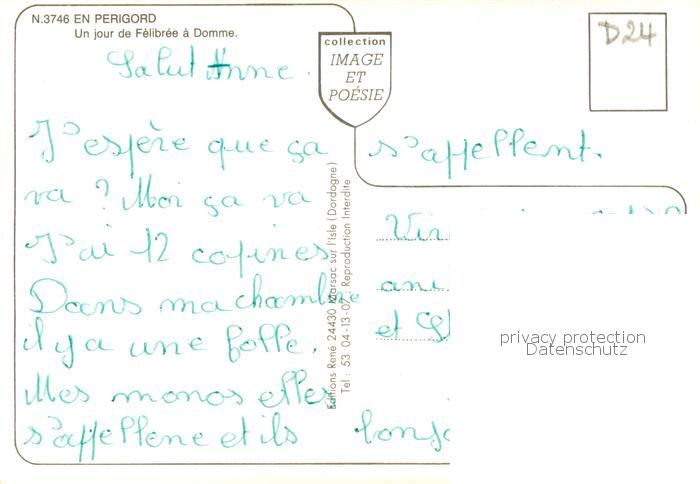 N.3746 EN PERIGORD
Un jour de Fèlibrée à Domme.
collection
IMAGE
ET
POÉSIE
D24
Salut Anne.
J'espère que ça
va ? Moi ça va
J'ai 12 copines
Dans ma chambre
il y a une folle.
Mes monos elles
s'appellene et ils
s'appellent.
Vir
ani
et
bonjo
Editions René 24430 Marsac sur l'Isle (Dordogne)
Tel : 53 04-13-07 Reproduction Interdite
privacy protection
Datenschutz